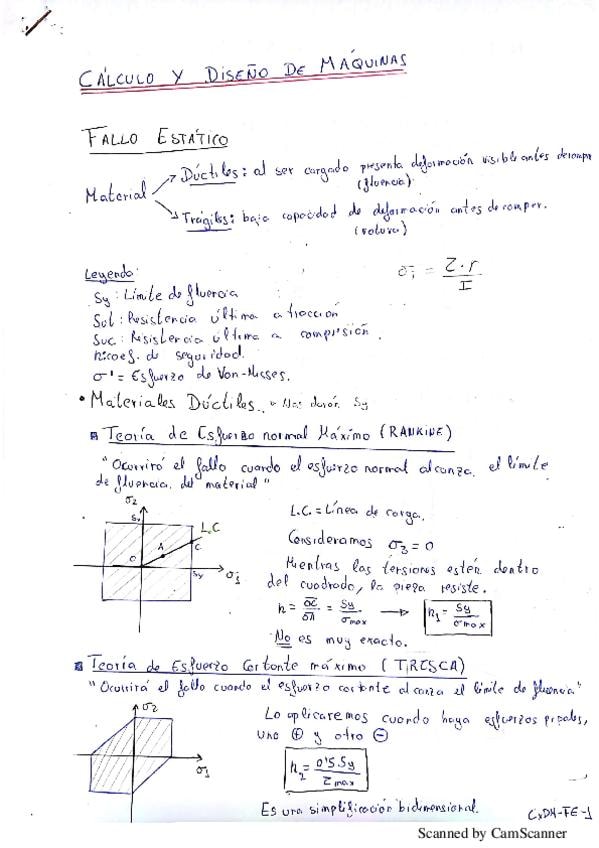 CÁLCULO Y DISEÑO DE MÁQUINAS
FALLO ESTÁTICO
Material
Dúctiles: al ser cargado presenta deformación visible antes de romper
(fluencia).
Frágiles: baja capacidad de deformación antes de romper.
(rotura)
Leyenda:
σi = Σ·r / I
Sy: Límite de fluencia
Sut: Resistencia última a tracción
Suc: Resistencia última a compresión.
n: coef. de seguridad.
σ' = Esfuerzo de Von-Misses.
• Materiales Dúctiles. Nos darán Sy
Teoría de Esfuerzo normal Máximo (RANKINE)
"Ocurrirá el fallo cuando el esfuerzo normal alcanza el límite
de fluencia del material"
σ2
Sy
L.C
A
C
O
Sy
σ1
L.C. = Línea de carga.
Consideramos σ3 = 0
Mientras las tensiones estén dentro
del cuadrado, la pieza resiste.
n = OC/OA = Sy/σmax → n1 = Sy/σmax
No es muy exacto.
Teoría de Esfuerzo Cortante máximo (TRESCA)
"Ocurrirá el fallo cuando el esfuerzo cortante alcanza el límite de fluencia"
σ2
σ1
Lo aplicaremos cuando haya esfuerzos ppales,
uno ⊕ y otro ⊖
n2 = 0'5 Sy / τmax
Es una simplificación bidimensional.
CyDM-FE-1
Scanned by CamScanner